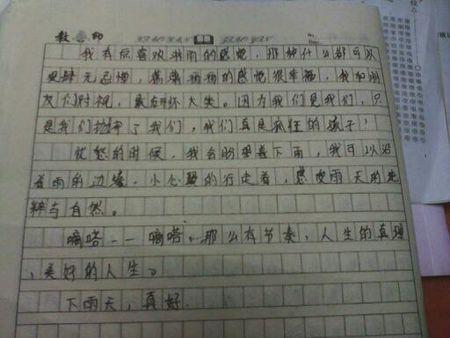 我有点喜欢淋雨的感觉，那种什么都可以
无忌惮，的感觉很幸福，我和朋
友们对视，大笑。因为我们是我们，只
是我们了我们，我们真是疯狂的孩子！
忧愁的时候，我会盼望着下雨，我可以沿
着雨的边缘，小心翼的行走着，感受雨天的
与自然。
嘀嗒——嘀嗒，那么有节奏，人生的真理
，美好的人生。
下雨天，真好.